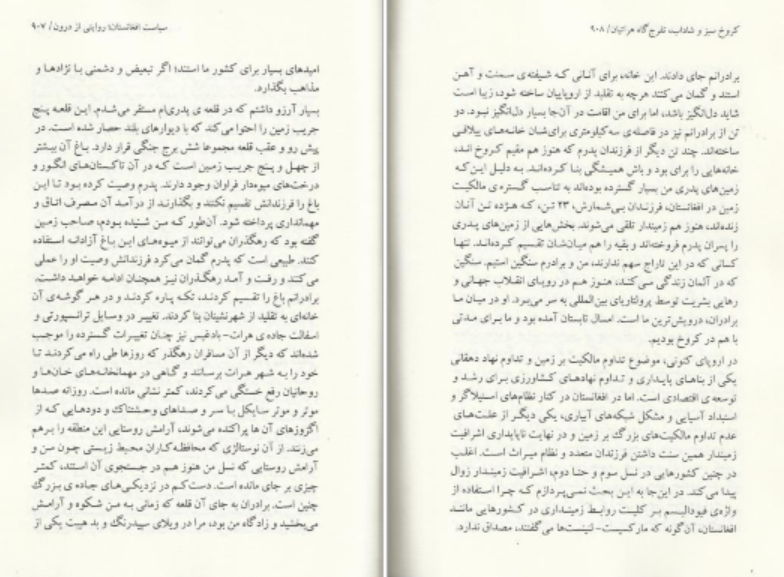 سیاست افغانستان؛ روایتی از درون/ ۹۰۷
امیدهای بسیار برای کشور ما استند؛ اگر تبعیض و دشمنی با نژادها و
مذاهب بگذارد.
بسیار آرزو داشتم که در قلعه ی پدری‌ام مستقر می‌شدم. این قلعه پنج
جریب زمین را احتوا می‌کند که با دیوارهای بلند حصار شده است. در
پیش رو و عقب قلعه مجموعا شش برج جنگی قرار دارد. باغ آن بیشتر
از چهل و پنج جریب زمین است که در آن تاکستان‌های انگور و
درخت‌های میوه‌دار فراوان وجود دارند. پدرم وصیت کرده بود تا این
باغ را فرزندانش تقسیم نکنند و بگذارند از درآمد آن مصرف اتاق و
مهمانداری پرداخته شود. آن‌طور که من شنیده بودم، صاحب زمین
گفته بود که رهگذران می‌توانند از میوه‌های این باغ آزادانه استفاده
کنند. طبیعی است که پدرم گمان می‌کرد فرزندانش وصیت او را عملی
می‌کنند و رفت و آمد رهگذران نیز همچنان ادامه خواهد داشت.
برادرانم باغ را تقسیم کردند، تکه پاره کردند و در هر گوشه‌ی آن
خانه‌ای به تقلید از شهرنشینان بنا کردند. تغییر در وسایل ترانسپورتی و
اسفالت جاده ی هرات- بادغیس نیز چنان تغییرات گسترده را موجب
شده‌اند که دیگر از آن مسافران رهگذر که روزها طی راه می‌کردند تا
خود را به شهر هرات برسانند و گاهی در مهمانخانه‌های خان‌ها و
روحانیان رفع خستگی می‌کردند، کمتر نشانی مانده است. روزانه صدها
موتر و موتر سایکل با سر و صداهای وحشتناک و دودهایی که از
اگزوزهای آن ها پراکنده می‌شوند، آرامش روستایی این منطقه را برهم
می‌زنند. از آن نوستالژی که محافظه‌کاران محیط زیستی چون من و
آرامش روستایی که نسل من هنوز هم در جستجوی آن استند، کمتر
چیزی بر جای مانده است. دست‌کم در نزدیکی‌های جاده ی بزرگ
چنین است. برادران به جای آن قلعه که زمانی به من شکوه و آرامش
می‌بخشید و زادگاه من بود، مرا در ویلای سپیدرنگ و بد هیبت یکی از
کروخ سبز و شاداب، تفرج‌گاه هراتیان/ ۹۰۸
برادرانم جای دادند. این خانه، برای آنانی که شیفته‌ی سمنت و آهن
استند و گمان می‌کنند هرچه به تقلید از اروپاییان ساخته شود، زیبا است
شاید دل‌انگیز باشد، اما برای من اقامت در آن‌جا بسیار دل‌انگیز نبود. دو
تن از برادرانم نیز در فاصله‌ی سه کیلومتری برای‌شان خانه‌های ییلاقی
ساخته‌اند. چند تن دیگر از فرزندان پدرم که هنوز هم مقیم کروخ اند،
خانه‌هایی را برای بود و باش همیشگی بنا کرده‌اند. به دلیل این که
زمین‌های پدری من بسیار گسترده بوده‌اند به تناسب گستره ی مالکیت
زمین در افغانستان، فرزندان بی‌شمارش، ۲۳ تن، که هژده تن آنان
زنده‌اند، هنوز هم زمیندار تلقی می‌شوند. بخش‌هایی از زمین‌های پدری
را پسران پدرم فروخته‌اند و بقیه را هم میان‌شان تقسیم کرده‌اند. تنها
کسانی که در این تاراج سهم ندارند، من و برادرم سنگین استیم. سنگین
که در آلمان زندگی می‌کند، هنوز هم در رویای انقلاب جهانی و
رهایی بشریت توسط پرولتاریای بین‌المللی به سر می‌برد. او در میان ما
برادران، درویش‌ترین ما است. امسال تابستان آمده بود و ما برای مدتی
با هم در کروخ بودیم.
در اروپای کنونی، موضوع تداوم مالکیت بر زمین و تداوم نهاد دهقانی
یکی از بناهای پایداری و تداوم نهادهای کشاورزی برای رشد و
توسعه ی اقتصادی است. اما در افغانستان در کنار نظام‌های استیلاگر و
استبداد آسیایی و مشکل شبکه‌های آبیاری، یکی دیگر از علت‌های
عدم تداوم مالکیت‌های بزرگ بر زمین و در نهایت ناپایداری اشرافیت
زمیندار همین سنت داشتن فرزندان متعدد و نظام میراث است. اغلب
در چنین کشورهایی در نسل سوم و حتا دوم، اشرافیت زمیندار زوال
پیدا می‌کند. در این‌جا به این بحث نمی‌پردازم که چرا استفاده از
واژه‌ی فیودالیسم بر کلیت روابط زمینداری در کشورهایی مانند
افغانستان، آن‌گونه که مارکسیست- لنینیست‌ها می‌گفتند، مصداق ندارد.